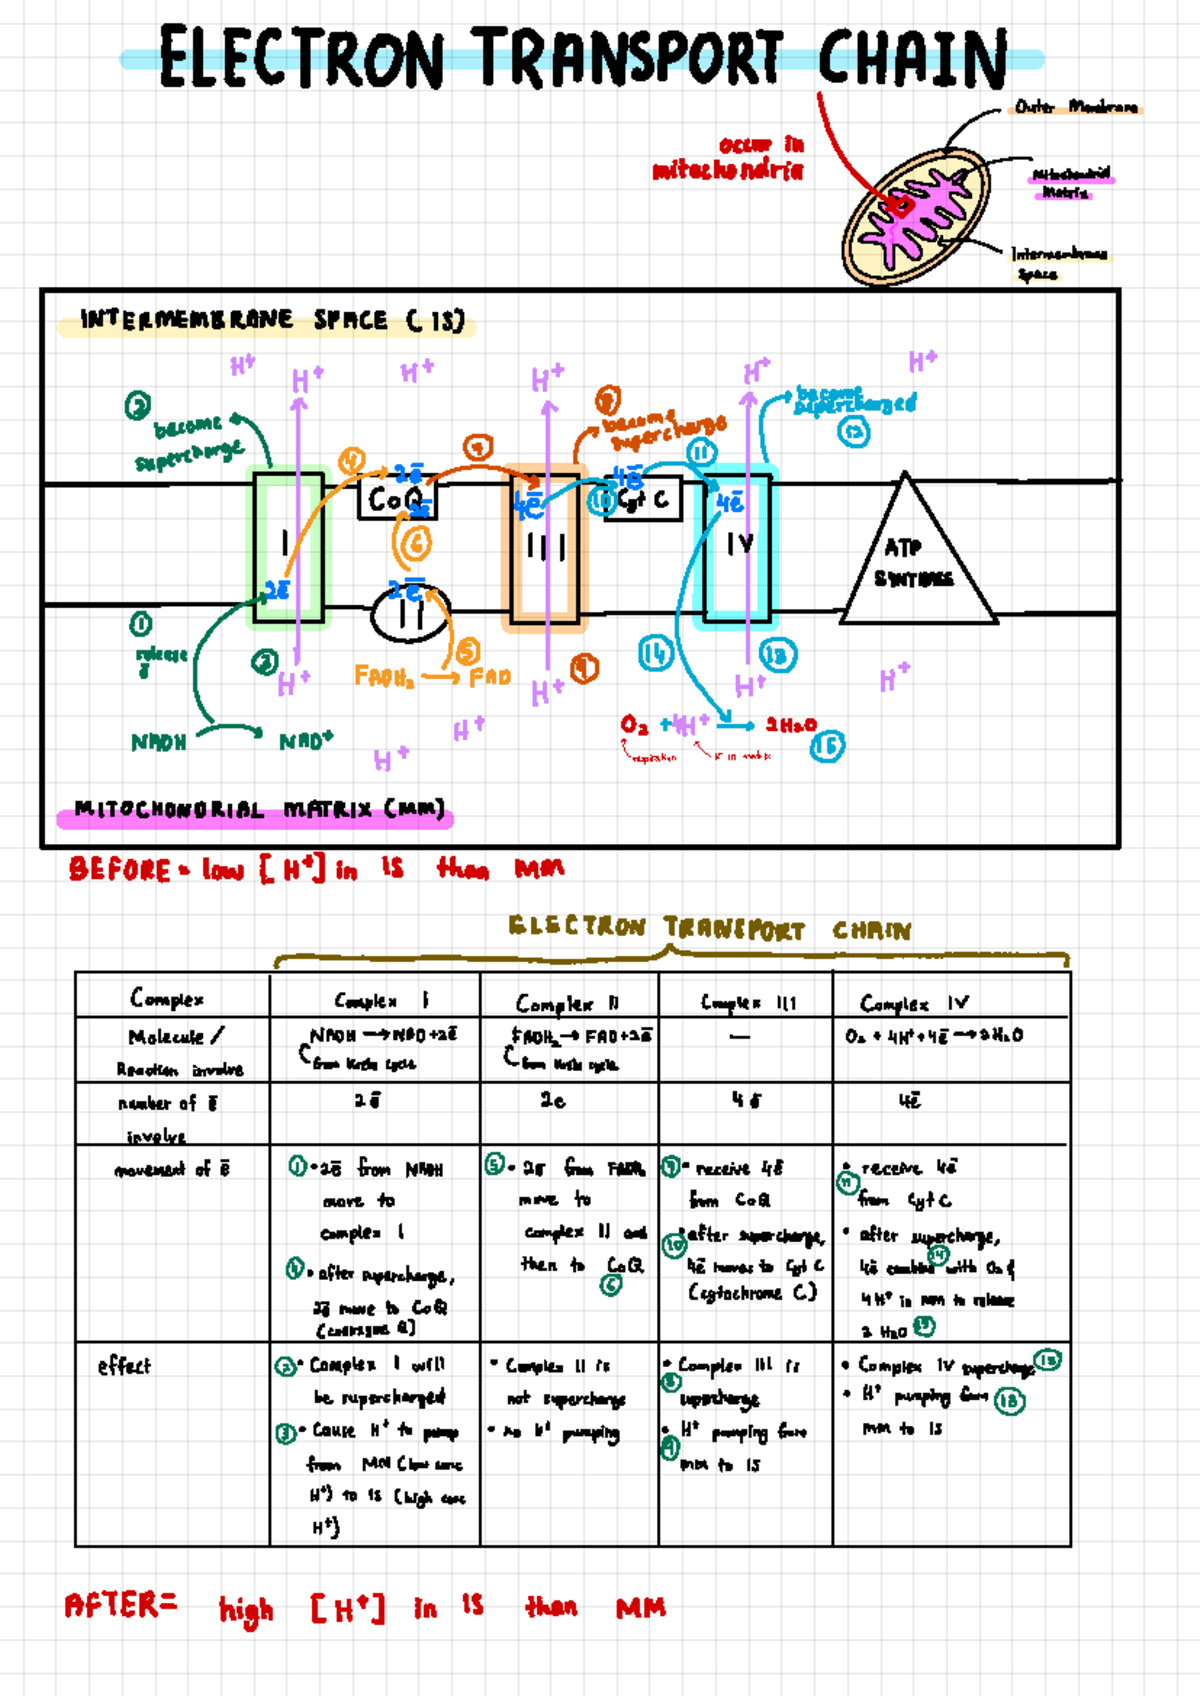 ELECTRON TRANSPORT CHAIN
occur in
mitochondria
Outer Membrane
Mitochondrial
Matrix
Intermembrane
Space
INTERMEMBRANE SPACE (IS)
H⁺ H⁺ H⁺ H⁺ H⁺ H⁺
② become
supercharge
⑧ become
supercharge
become
supercharged
⑫
④ 2ē ⑦ 4ē ⑪
CoQ 2ē 4ē ⑩ Cyt C 4ē
I III IV ATP
⑥
2ē 2ē
II
①
release
ē
③ H⁺ ⑤ ⑨ H⁺ ⑭ H⁺ ⑬ H⁺
FADH₂ → FAD
NADH NAD⁺
H⁺ H⁺
O₂ + 4H⁺ → 2H₂O
⑮
H⁺ in matrix
MITOCHONDRIAL MATRIX (MM)
BEFORE = low [H⁺] in IS than MM
ELECTRON TRANSPORT CHAIN
Complex Complex I Complex II Complex III Complex IV
Molecule / Reaction involve
NADH → NAD + 2ē
from Krebs cycle
FADH₂ → FAD + 2ē
from Krebs cycle
—
O₂ + 4H⁺ + 4ē → 2H₂O
number of ē involve
2ē 2e 4ē 4ē
movement of ē
① • 2ē from NADH
move to
complex I
④ • after supercharge,
2ē move to CoQ
⑤ • 2ē from FADH₂
move to
complex II and
then to CoQ
⑥
⑦ • receive 4ē
from CoQ
⑩ • after supercharge,
4ē moves to Cyt C
(cytochrome C)
• receive 4ē
⑪ from Cyt C
• after supercharge,
4ē combine with O₂ &
⑭
4H⁺ in mm to release
2 H₂O ⑮
effect
② • Complex I will
be supercharged
③ • Cause H⁺ to pump
from MM (low conc
H⁺) to IS (high conc
H⁺)
• Complex II is
not supercharge
• no H⁺ pumping
• Complex III is
⑧ supercharge
• H⁺ pumping from
⑨ mm to IS
• Complex IV supercharge ⑫
• H⁺ pumping from ⑬
mm to IS
AFTER = high [H⁺] in IS than MM